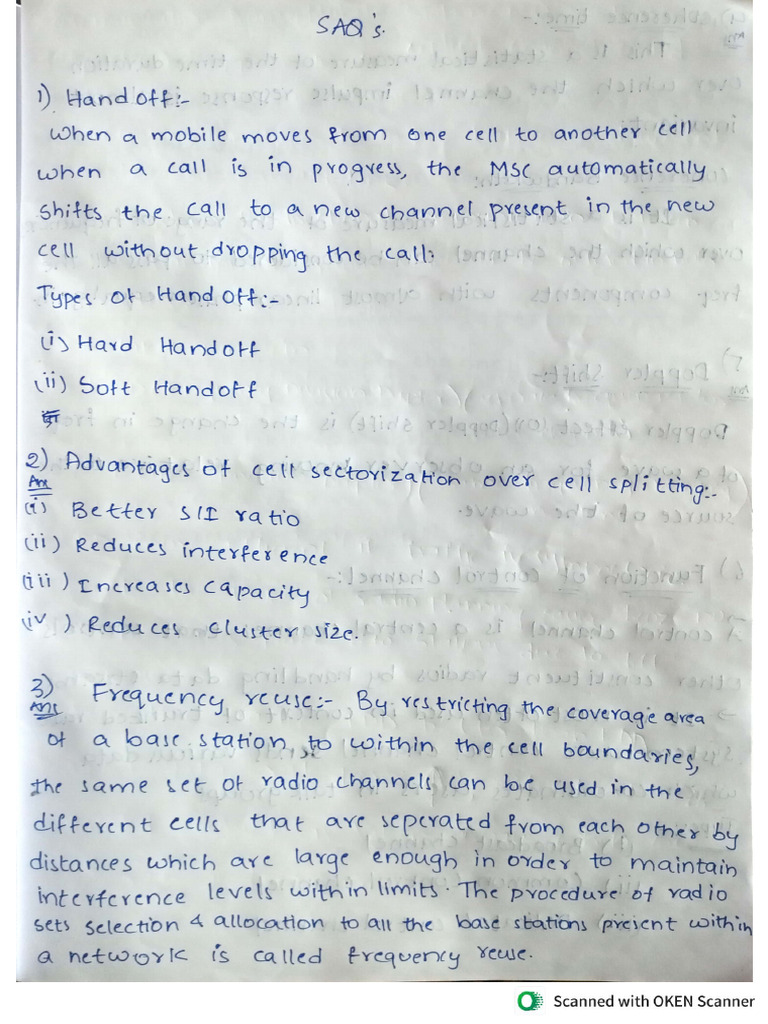 SAQ's.
1) Hand off:-
When a mobile moves from one cell to another cell
when a call is in progress, the MSC automatically
shifts the call to a new channel present in the new
cell without dropping the call.
Types of Hand off:-
(i) Hard Handoff
(ii) Soft Handoff
2) Advantages of cell sectorization over cell splitting:-
Ans
(i) Better S/I ratio
(ii) Reduces interference
(iii) Increases capacity
(iv) Reduces cluster size.
3) Frequency reuse:- By restricting the coverage area
Ans
of a base station, to within the cell boundaries,
the same set of radio channels can be used in the
different cells that are seperated from each other by
distances which are large enough in order to maintain
interference levels within limits. The procedure of radio
sets selection & allocation to all the base stations present within
a network is called frequency reuse.
Scanned with OKEN Scanner